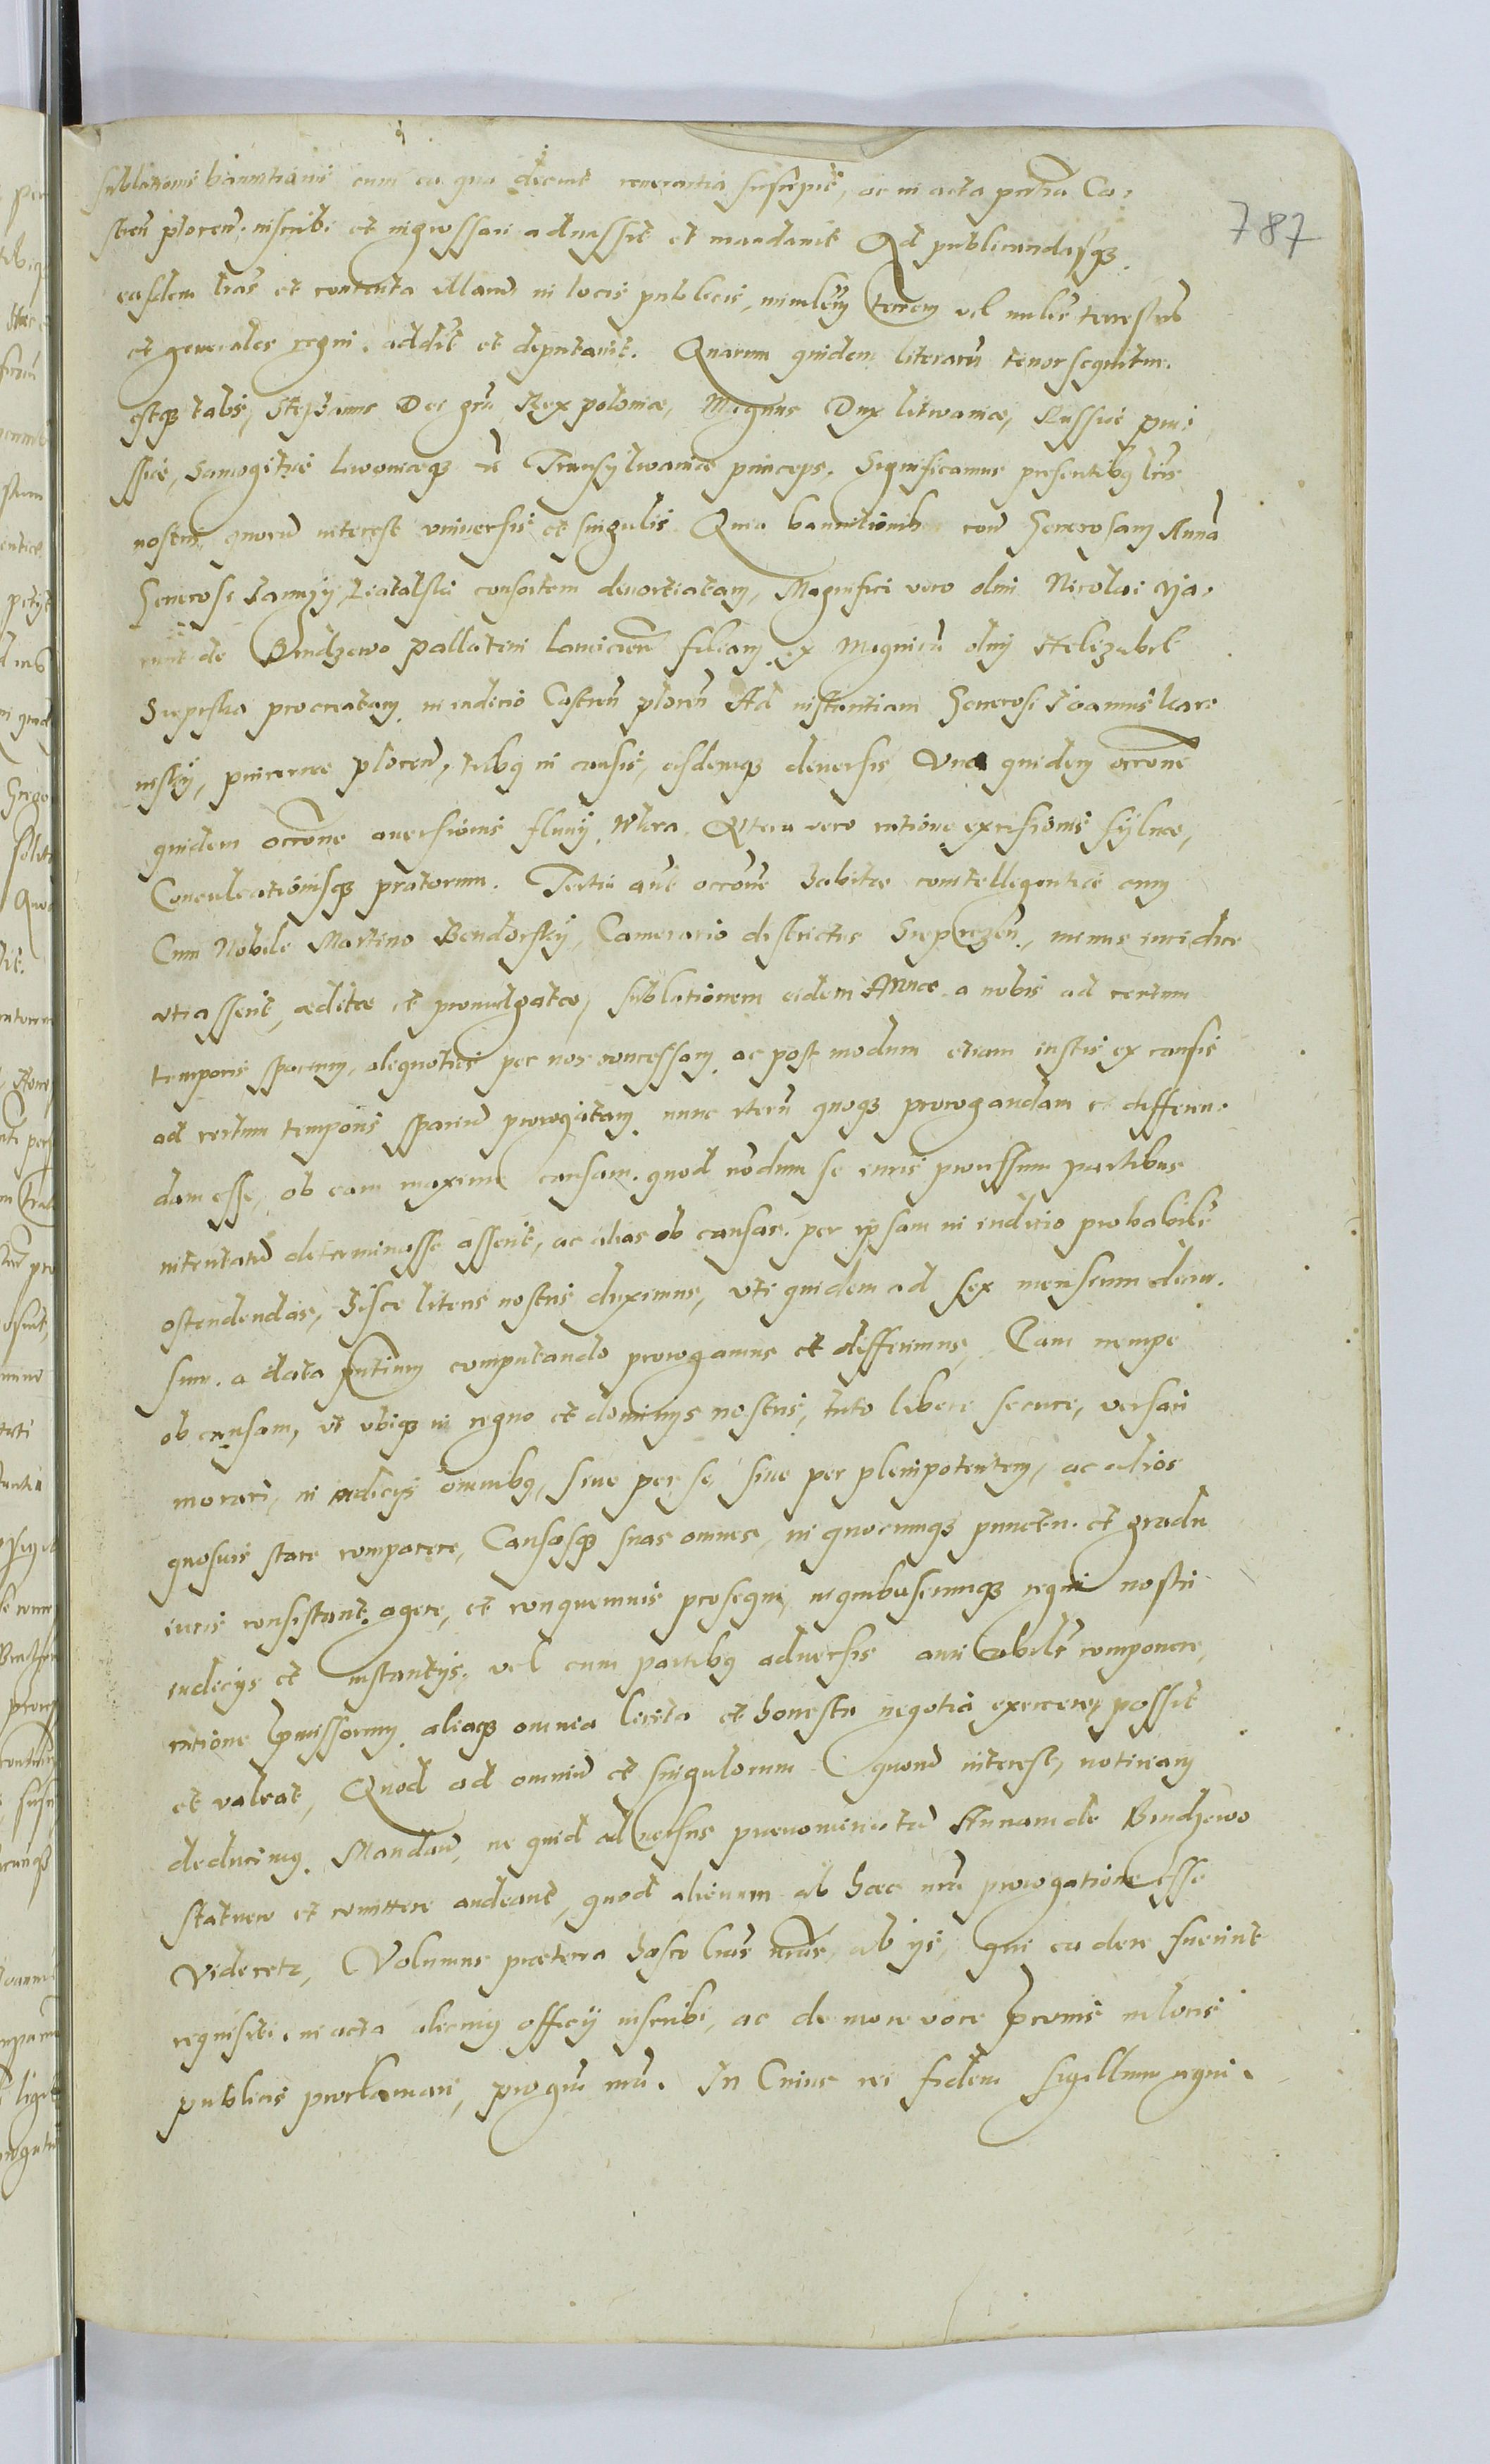 787
sublationis bannitionis cum ea qua decuit reverentia suscepit, ac in acta pntia Ca-
stren plocen. inscribi et ingrossari admissit et mandavit Ad publicandasq3
easdem lras et contenta illarū in locis publicis, minlem terrem vel mlēs terrestres
et generales regni. addit et deputavit. Quarum quidem literarū tenor sequitur.
estq3 talis, Stephanus Dei grā Rex poloniæ, Magnus Dux litwaniæ, Russiæ prus-
siæ, Samogitiæ livoniæq3 Transylwaniæ princeps. Significamus presentibq lris
nostris quorū interest vniversis et singulis. Quia bannitionibus con Generosam Anna
Generosi consortem devortiatam, Magnifici vero olim Nicolai
de Brudzewo pallatini Lancicien filiam ex Magnica olim Helizabet
procreatam in iudicio Castren plocen Ad instantiam Generosi Joannis
pincernæ plocen, tribq in causis, eisdemq3 diversis Vna quidem occone
quidem occone aversionis fluvij Wkra. Altera vero ratione excisionis sylvæ,
Conculcationisq3 pratorum. Tertia aut occone habitæ contellegentiæ cum
Cum Nobile Martino Bendorsky, Camerario districtus minus iuridice
vti asserit, æditæ et promulgatæ, sublationem eidem Annæ a nobis ad certum
temporis spacium, aliquoties per nos concessam, ac post modum etiam iustis ex causis
ad certum temporis spaciū prorogatam, nunc iterū quoq3 prorogandam et differen-
dam esse, ob eam maxime causam. quod nōdum se iuris processum partibus
intentatū determinasse asserit, ac alias ob causas. per ipsam in iudicio probabilr
ostendendas, hisce literis nostris duximus, vti quidem ad sex mensium decur-
sum. a data pntium computando prorogamus et differimus, Eam nempe
ob causam, vt vbiq3 in regno et dominijs nostris, tuto libere secure, versari
morari, in iudicijs omnibq, sive per se, sive per plenipotentem, ac alios
quosvis stare comparere, Causasq3 suas omnes, in quocunq3 punctu. et gradu
iuris consistant, agere, et conquemuis prosequi, inquibuscunq3 regni nostri
iudicijs et instantijs. vel cum partibq adversis amicabilr componere,
ratione pmissorum, aliaq3 omnia licita et honesta negotia exercere, possit
et valeat, Quod ad omniū et singulorum quorū interest, notitiam
deducimq. Mandam, ne quid adversus prænominatū Annam de Brudzewo
statuere et comittere audeant, quod alienum ab hac nrā prorogatione esse
videretr, Volumus præterea hasce lras nras, ab ijs, qui ea de re fuerint
requisiti. in acta alicuiq officij inscribi, ac de more voce preconis in locis
publicis proclamari, pro grā nrā. In Cuius rei fidem sigillum regni.